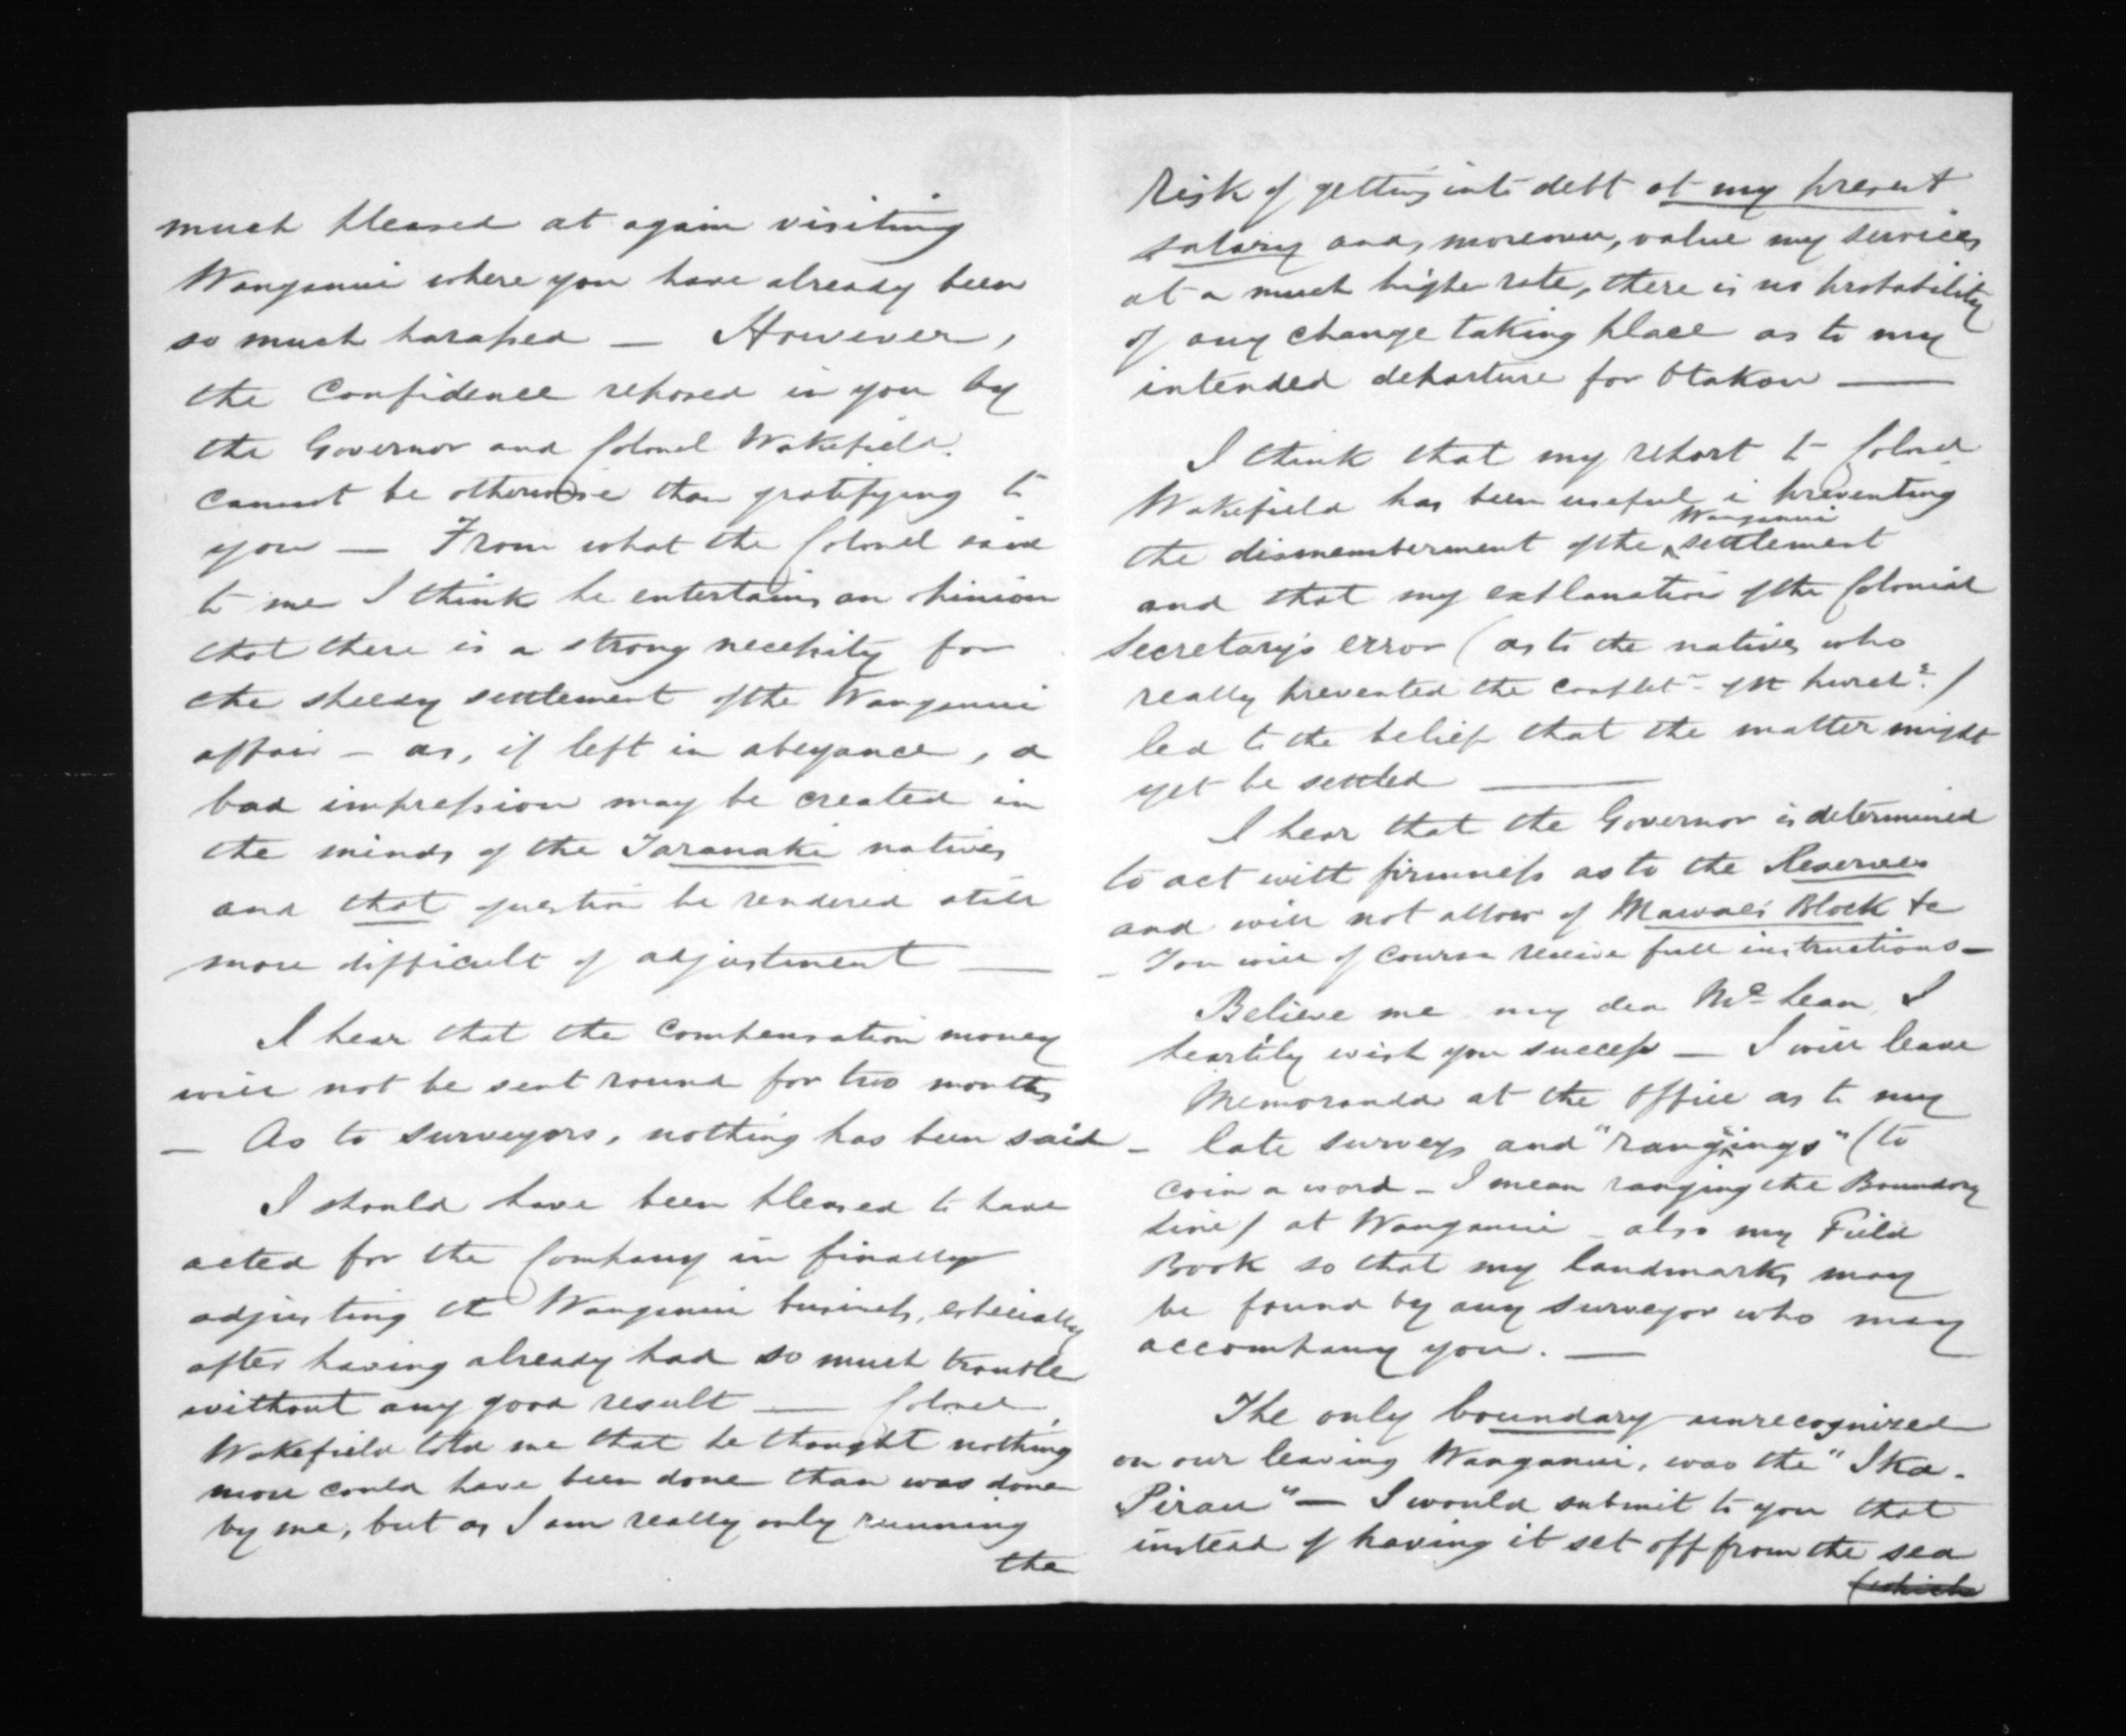 much pleased at again visiting
Wanganui where you have already been
so much harassed — However,
the confidence reposed in you by
the Governor and Colonel Wakefield
cannot be otherwise than gratifying to
you — From what the Colonel said
to me I think he entertains an opinion
that there is a strong necessity for
the speedy settlement of the Wanganui
affair — as, if left in abeyance, a
bad impression may be created in
the minds of the Taranaki natives
and that question be rendered still
more difficult of adjustment —
I hear that the compensation money
will not be sent round for two months
— As to surveyors, nothing has been said —
I should have been pleased to have
acted for the Company in finally
adjusting the Wanganui business, especially
after having already had so much trouble
without any good result — Colonel
Wakefield told me that he thought nothing
more could have been done than was done
by me, but as I am really only running
the
risk of getting into debt at my present
salary and, moreover, value my services
at a much higher rate, there is no probability
of any change taking place as to my
intended departure for Otakou —
I think that my report to Colonel
Wakefield has been useful in preventing
the dismemberment of the Wanganui settlement
and that my explanation of the Colonial
Secretary's error (as to the natives who
really prevented the complet.n of the purch.e)
led to the belief that the matter might
yet be settled —
I hear that the Governor is determined
to act with firmness as to the Reserves
and will not allow of Mawae's Block &c
— You will of course receive full instructions —
Believe me my dear McLean, I
heartily wish you success — I will leave
Memoranda at the Office as to my
late surveys and "rangeings" (to
coin a word — I mean ranging the Boundary
lines) at Wanganui — also my Field
Book so that my landmarks may
be found by any surveyor who may
accompany you. —
The only boundary unrecognized
on our leaving Wanganui, was the "Ika-
Pirau" — I would submit to you that
instead of having it set off from the sea
(which